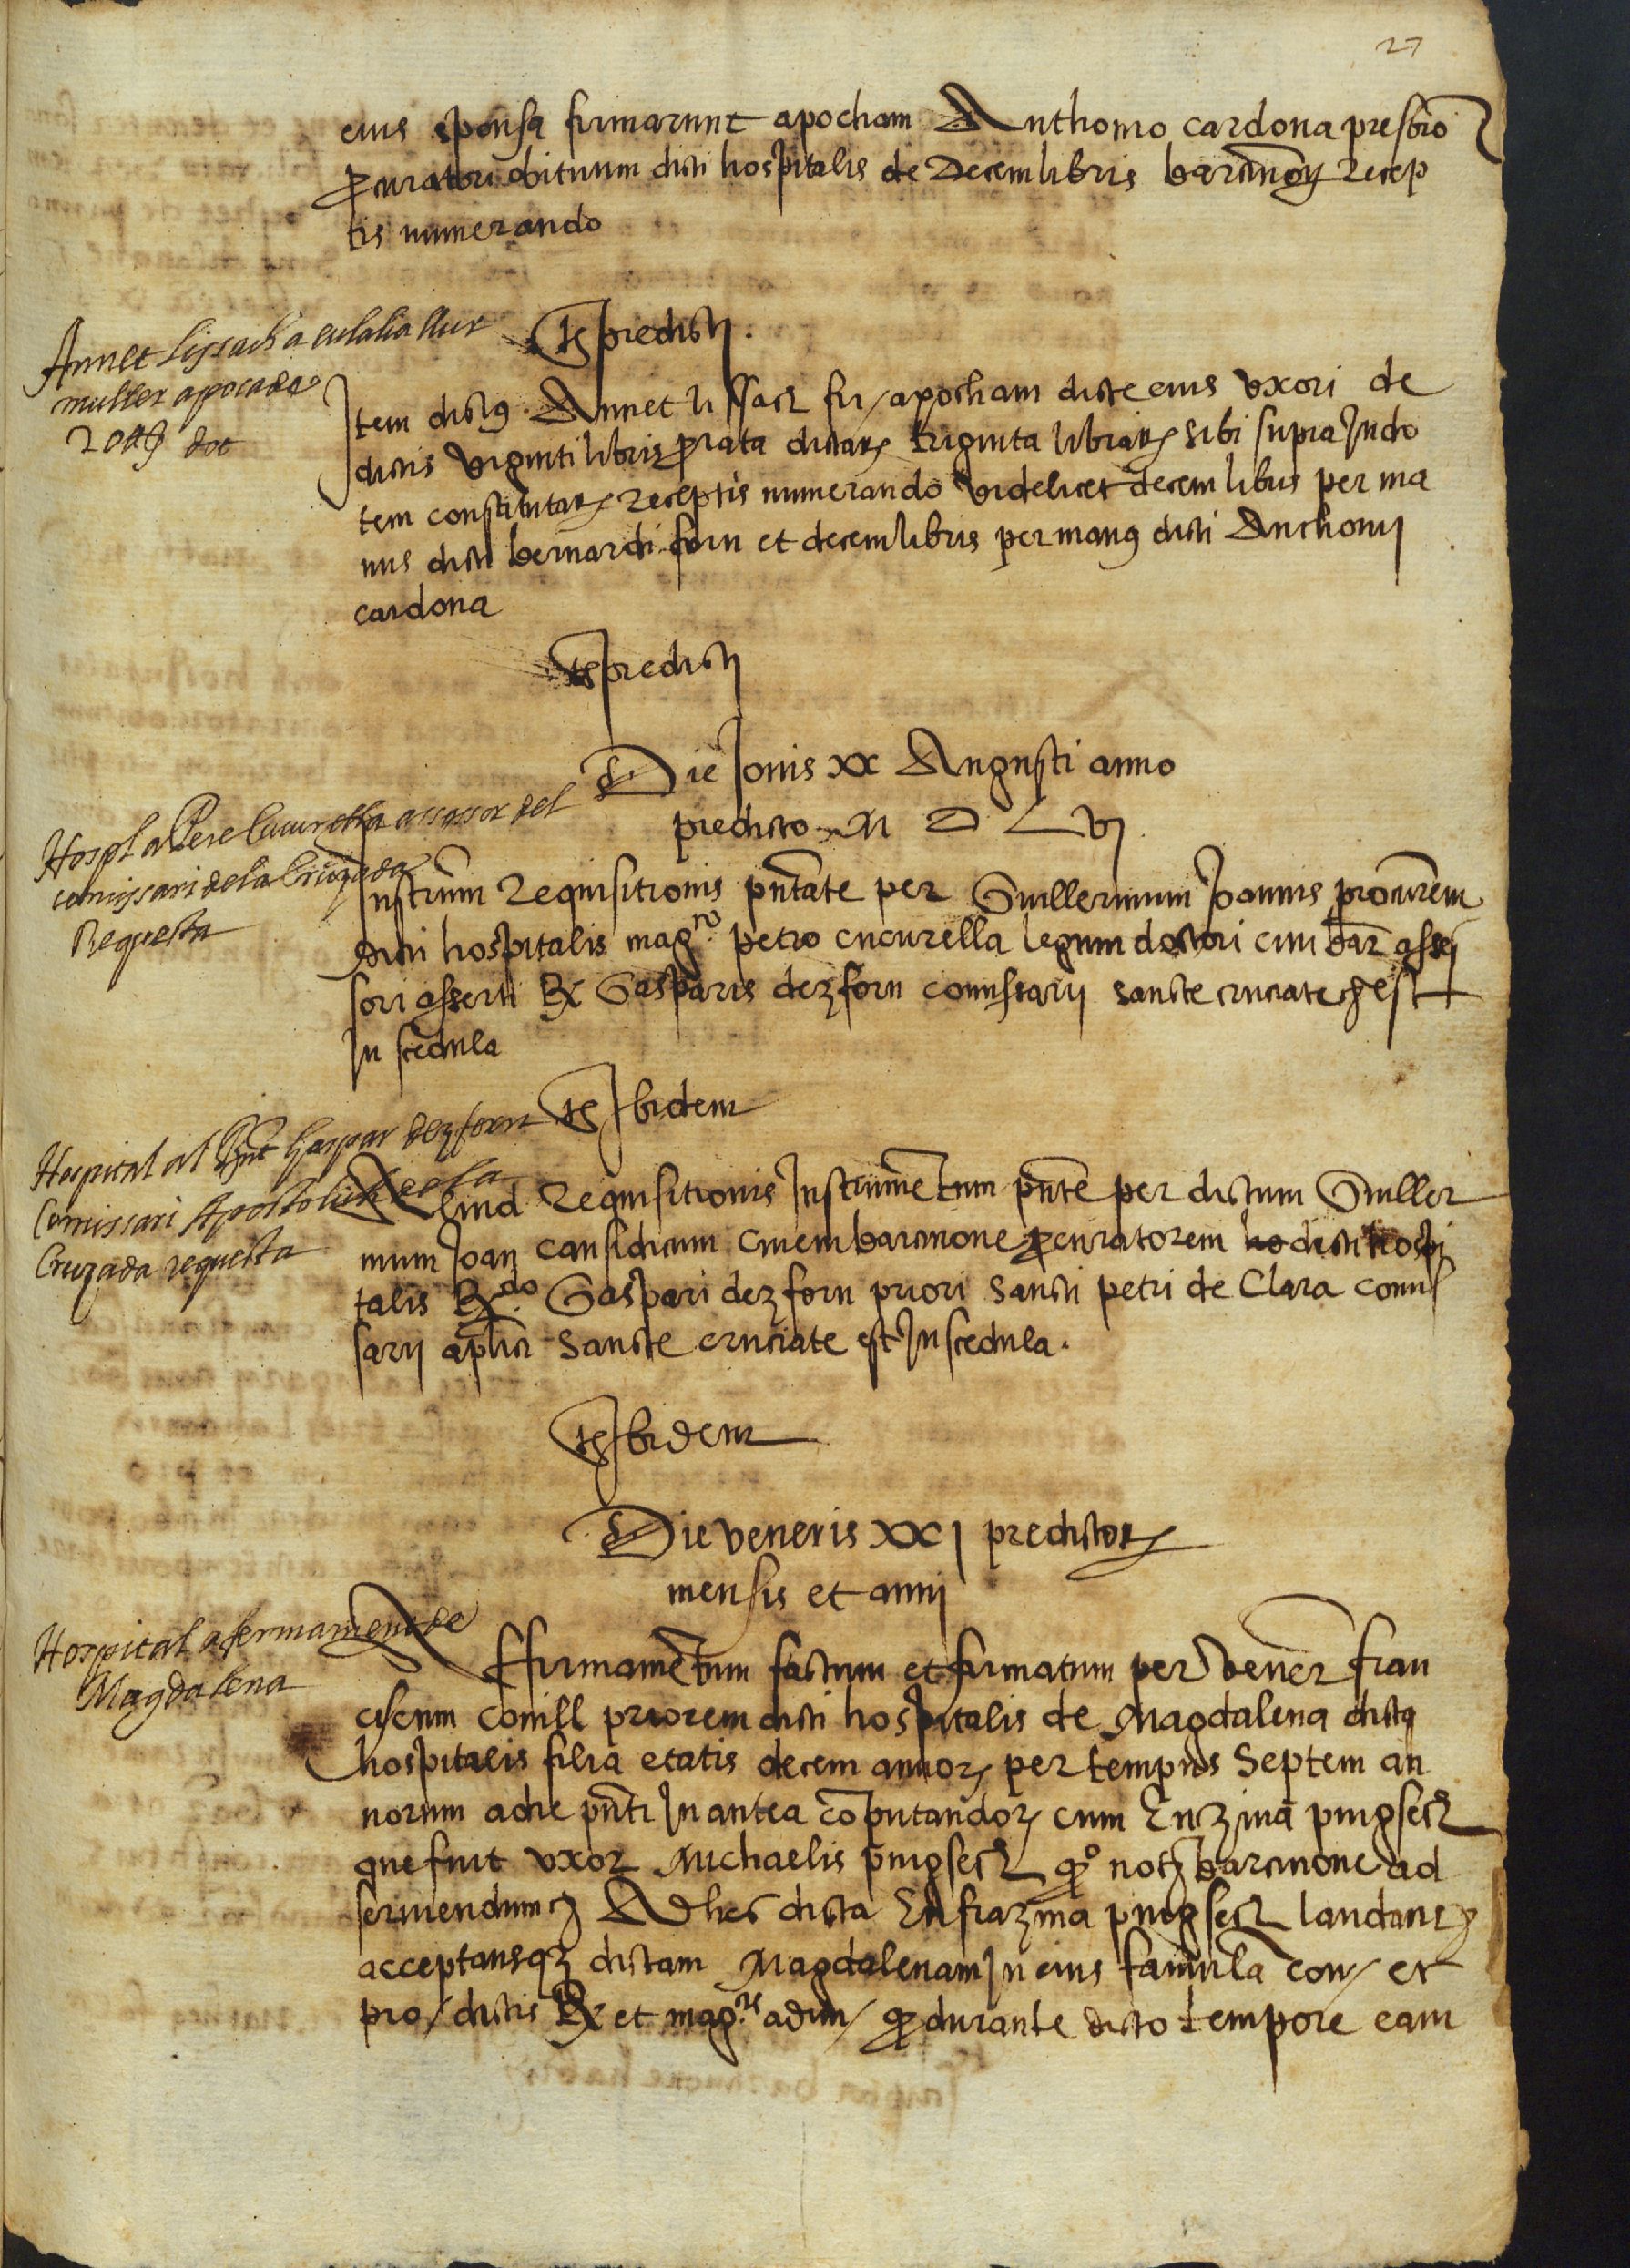 27
eius sponsa firmarunt apocham Anthonio cardona presbro
procuratori obituum dicti hospitalis de Decem libris barcinoñ recep
tis numerando
Annet lissach a eulalia sa
muller apoca de
20 ₶ dot
ts predicti.
Item dictus Annet lissach fir/ apocham dicte eius uxori de
dictis viginti libris prorata dictarꝫ triginta librarꝫ sibi supra Indo
tem constitutarꝫ receptis numerando videlicet decem libris per ma
nus dicti bernardi forn et decem libris per manus dicti Anthonij
cardona
ts predicti
Die Jouis xx Augusti anno
predicto M D L vj
Hospl a Pere Cucurella assessor del
comissari de la Cruzada
Requesta
Instrum̃ requisitionis pñtate per Guillermum Joannis procurem̃
dicti hospitalis mag.co petro cucurella legum doctori ciui bar̃ asse
sori asserti Rx Gasparis dezforn comissarij sancte cruciate est
In scedula
ts Ibidem
Hospital al Rnt Gaspar dezforn
Comissari Apostolich de la
Cruzada requesta
Aliud requisitionis Instrumẽtum pñte per dictum Guiller
mum Joan causidicum ciuem barcinone procuratorem ho dicti hospi
talis Rx.do Gaspari dezforn priori sancti petri de Clara comis
sarij aplici sancte cruciate est In scedula.
ts Ibidem
Die veneris XXI predictorꝫ
mensis et anni
Hospital afermament de
Magdalena
Affirmamẽtum factum et firmatum per vener fran
ciscum conill priorem dicti hospitalis de Magdalena dicti
hospitalis filia etatis decem annorꝫ per tempus septem an
norum a die pñti In antea cõputandorꝫ cum Enzina puigsech
que fuit uxor Michaelis puigsech qº notꝫ barcinone ad
seruiendum ꝫ Ad hec dicta Eufrazina puigsech laudans ꝫ
acceptansqꝫ dictam Magdalenam In eius famula con/ et
pro/ dictis Rx et mag.cis adm/ qꝫ durante dicto tempore eam